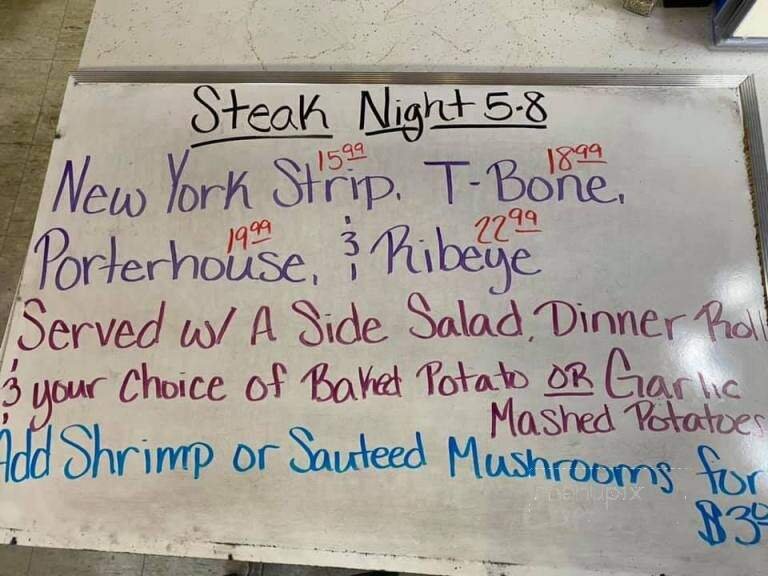 Steak Night 5-8
15.99 18.99
New York Strip, T-Bone,
19.99 22.99
Porterhouse, & Ribeye
Served w/ A Side Salad, Dinner Roll
& your Choice of Baked Potato OR Garlic
Mashed Potatoes
Add Shrimp or Sauteed Mushrooms for
menupix